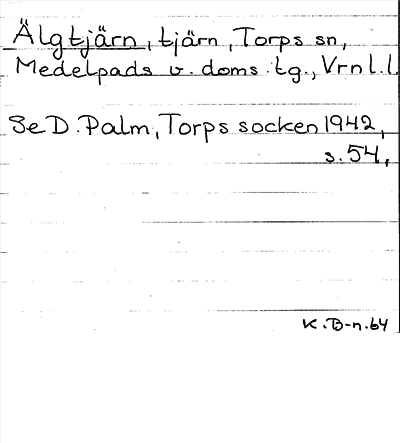 Älgtjärn, tjärn, Torps sn,
Medelpads v. doms. tg., Vrnl.l.
Se D. Palm, Torps socken 1942,
s. 54,
K.B-n.64